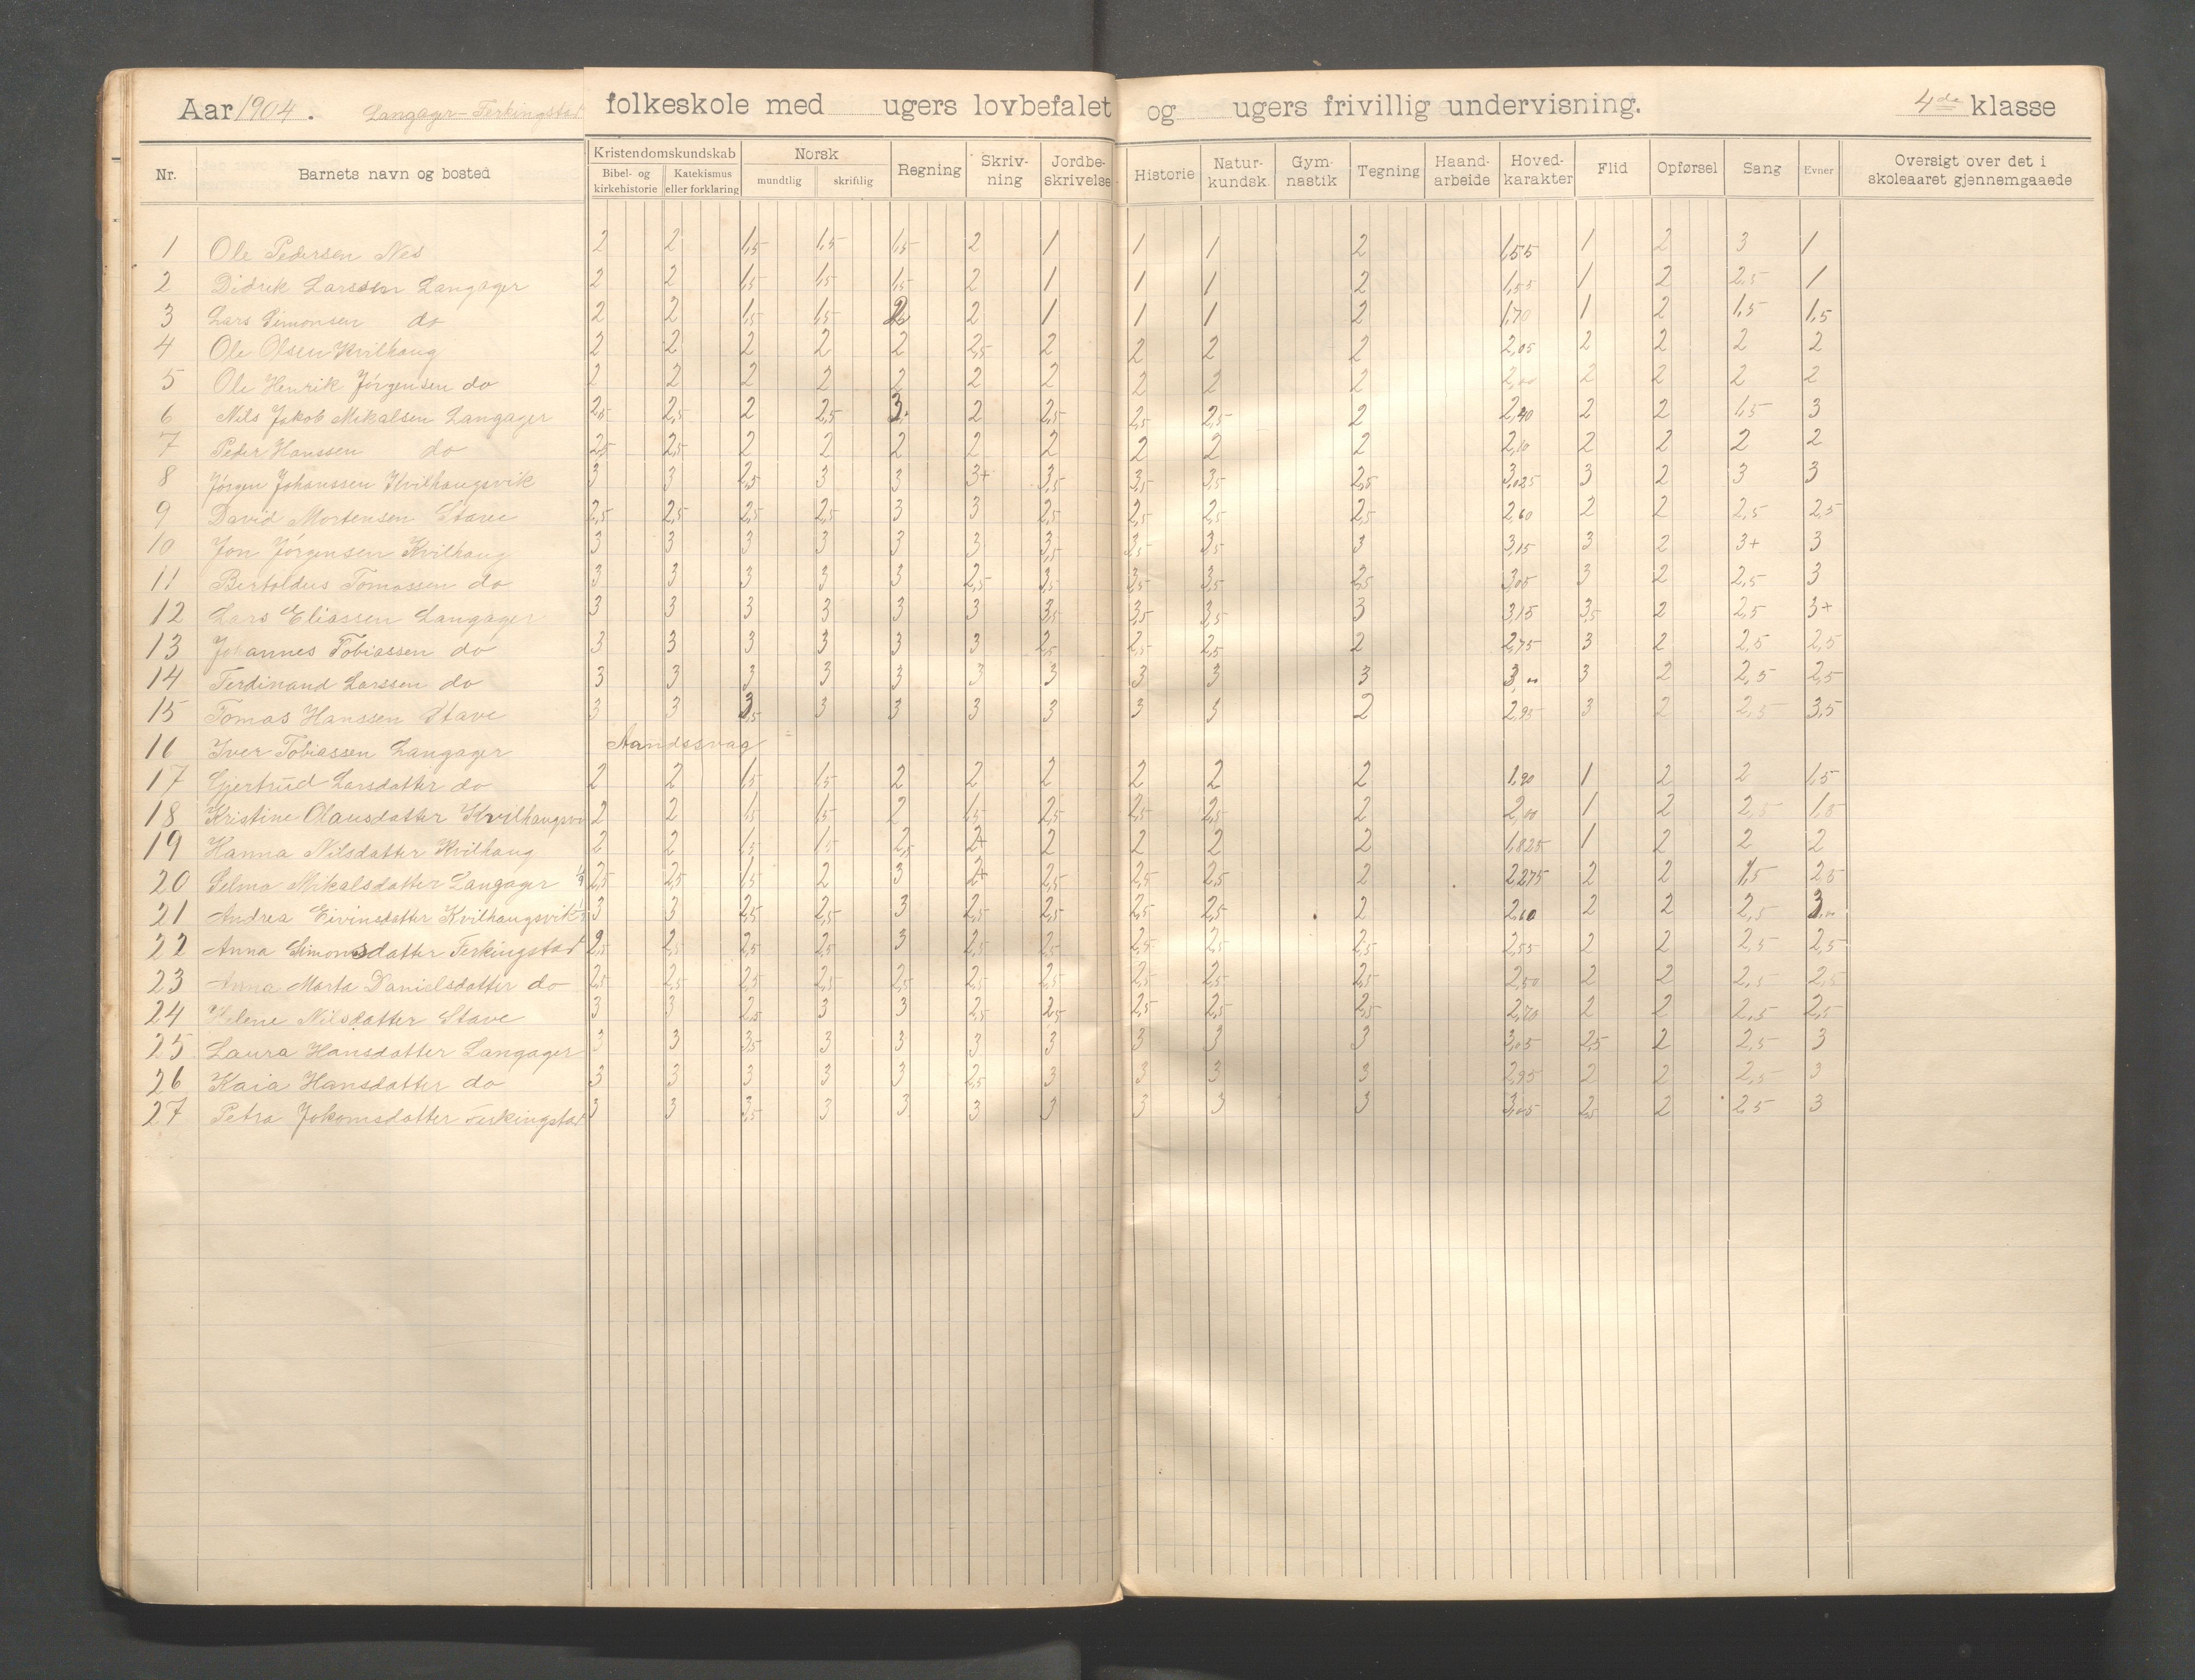 Aar 1904. Langager-Ferkingstad folkeskole med ugers lovbefalet og ugers frivillig undervisning. 4de klasse
Nr. Barnets navn og bosted Kristendomskundskab Bibel- og kirkehistorie Katekismus eller forklaring Norsk mundtlig skriftlig Regning Skriv-ning Jordbe-skrivelse Historie Natur-kundsk. Gym-nastik Tegning Haand-arbeide Hoved-karakter Flid Opførsel Sang Evner Oversigt over det i skoleaaret gjennemgaaede
1 Ole Pedersen Nes 2 2 1,5 1,5 1,5 2 1 1 1 2 1,55 1 2 3 1
2 Didrik Larssen Langager 2 2 1,5 1,5 1,5 2 1 1 1 2 1,55 1 2 2,5 1
3 Lars Simonsen do 2 2 1,5 1,5 2 2 1 1 1 2 1,70 1 2 1,5 1,5
4 Ole Olsen Kvilhaug 2 2 2 2 2 2,5 2 2 2 2 2,05 2 2 2 2
5 Ole Henrik Jörgensen do 2 2 2 2 2 2 2 2 2 2 2,00 2 2 2 2
6 Nils Jakob Mikalsen Langager 2,5 2,5 2 2,5 3 2 2,5 2,5 2,5 2 2,40 2 2 1,5 3
7 Peder Hanssen do 2,5 2,5 2 2 2 2 2 2 2 2 2,10 2 2 2 2
8 Jörgen Johanssen Kvilhaugsvik 3 3 2,5 3 3 3+ 3,5 3,5 3,5 2,5 3,025 3 2 3 3
9 David Mortensen Stave 2,5 2,5 2,5 2,5 3 3 2,5 2,5 2,5 2,5 2,60 2 2 2,5 2,5
10 Jon Jörgensen Kvilhaug 3 3 3 3 3 3 3,5 3,5 3,5 3 3,15 3 2 3+ 3
11 Bertoldus Tomassen do 3 3 3 3 3 2,5 3,5 3,5 3,5 2,5 3,05 3 2 2,5 3
12 Lars Eliassen Langager 3 3 3 3 3 3 3,5 3,5 3,5 3 3,15 3,5 2 2,5 3+
13 Johannes Tobiassen do 3 3 3 3 3 3 2,5 2,5 2,5 2 2,75 3 2 2,5 2,5
14 Ferdinand Larssen do 3 3 3 3 3 3 3 3 3 3 3,00 3 2 2,5 2,5
15 Tomas Hanssen Stave 3 3 3,5 3 3 3 3 3 3 2 2,95 3 2 2,5 3,5
16 Iver Tobiassen Langager Aandssvag
17 Gjertrud Larsdatter do 2 2 1,5 1,5 2 2 2 2 2 2 1,90 1 2 2 1,5
18 Kristine Olausdatter Kvilhaugsv 2 2 1,5 1,5 2 1,5 2,5 2,5 2,5 2 2,00 1 2 2,5 1,5
19 Hanna Nilsdatter Kvilhaug 2 2 1,5 1,5 2,5 2+ 2 2 2 2 1,825 1 2 2 2
20 Selma Mikalsdatter Langager 2,5 2,5 1,5 2 3 2+ 2,5 2,5 2,5 2 2,275 2 2 1,5 2,5
21 Andrea Eivindsdatter Kvilhaugsvik 3 3 2,5 2,5 3 2,5 2,5 2,5 2,5 2 2,60 2 2 2,5 3,00
22 Anna Simonsdatter Ferkingstad 2,5 2,5 2,5 2,5 3 2,5 2,5 2,5 2,5 2,5 2,55 2 2 2,5 2,5
23 Anna Marta Danielsdatter do 2,5 2,5 2,5 2,5 2,5 2,5 2,5 2,5 2,5 2,5 2,50 2 2 2,5 2,5
24 Helene Nilsdatter Stave 3 3 2,5 3 3 2,5 2,5 2,5 2,5 2,5 2,70 2 2 2,5 2,5
25 Laura Hansdatter Langager 3 3 3,5 3 3 3 3 3 3 3 3,05 2,5 2 2,5 3
26 Kaia Hansdatter do 3 3 3 3 3 2,5 3 3 3 3 2,95 2 2 2,5 3
27 Petra Jokomsdatter Ferkingstad 3 3 3,5 3 3 3 3 3 3 3 3,05 2,5 2 2,5 3